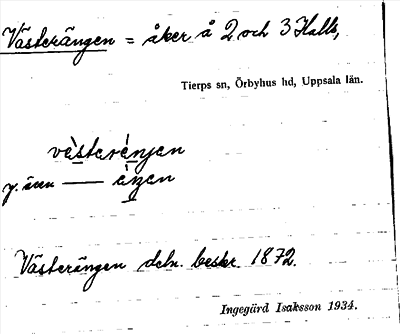 Västerängen = åker å 2 och 3 Halls,
Tierps sn, Örbyhus hd, Uppsala län.
vàsterénjen
y. även — èŋen
Västerängen deln. beskr. 1872.
Ingegärd Isaksson 1934.